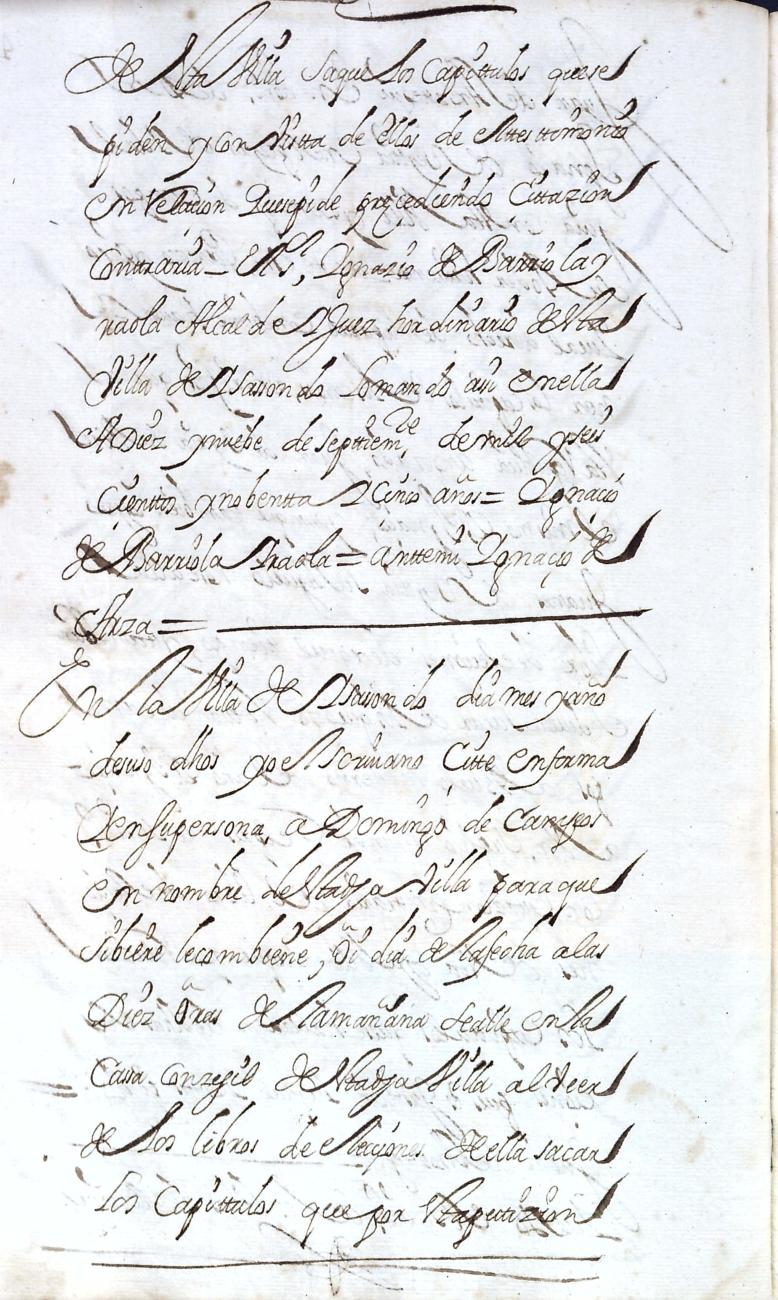 de Vta Villa saque Los Capittulos que se
piden y con Vistta de ellos de el testtimonio
en Relacion Que se pide prezediendo Cittazion
Conttraria – El Sr, Ygnazio de Barriola y
raola Alcalde y Juez hordinario de Vta
Villa de Ysasondo Lo mando assi en ella
A Diez y nuebe de septtiembre, de mill y seis
Cienttos y nobentta y Cinco años = Ygnacio
de Barriola Yraola = antte mi Ygnacio de
Arza =
En la Villa de Ysasondo dia mes y año
de suso dhos yo el Scrivano Citte en forma
Y en su persona, a Domingo de Campos
en nombre de Vta dha Villa para que
si biere le combiene, oi dia de la fecha a las
Diez oras de la mañana se alle en la
Cassa Conzegil de Vta dha Villa al veer
de Los libros de elecciones de ella sacar
Los Capittulos que por Vta petizion